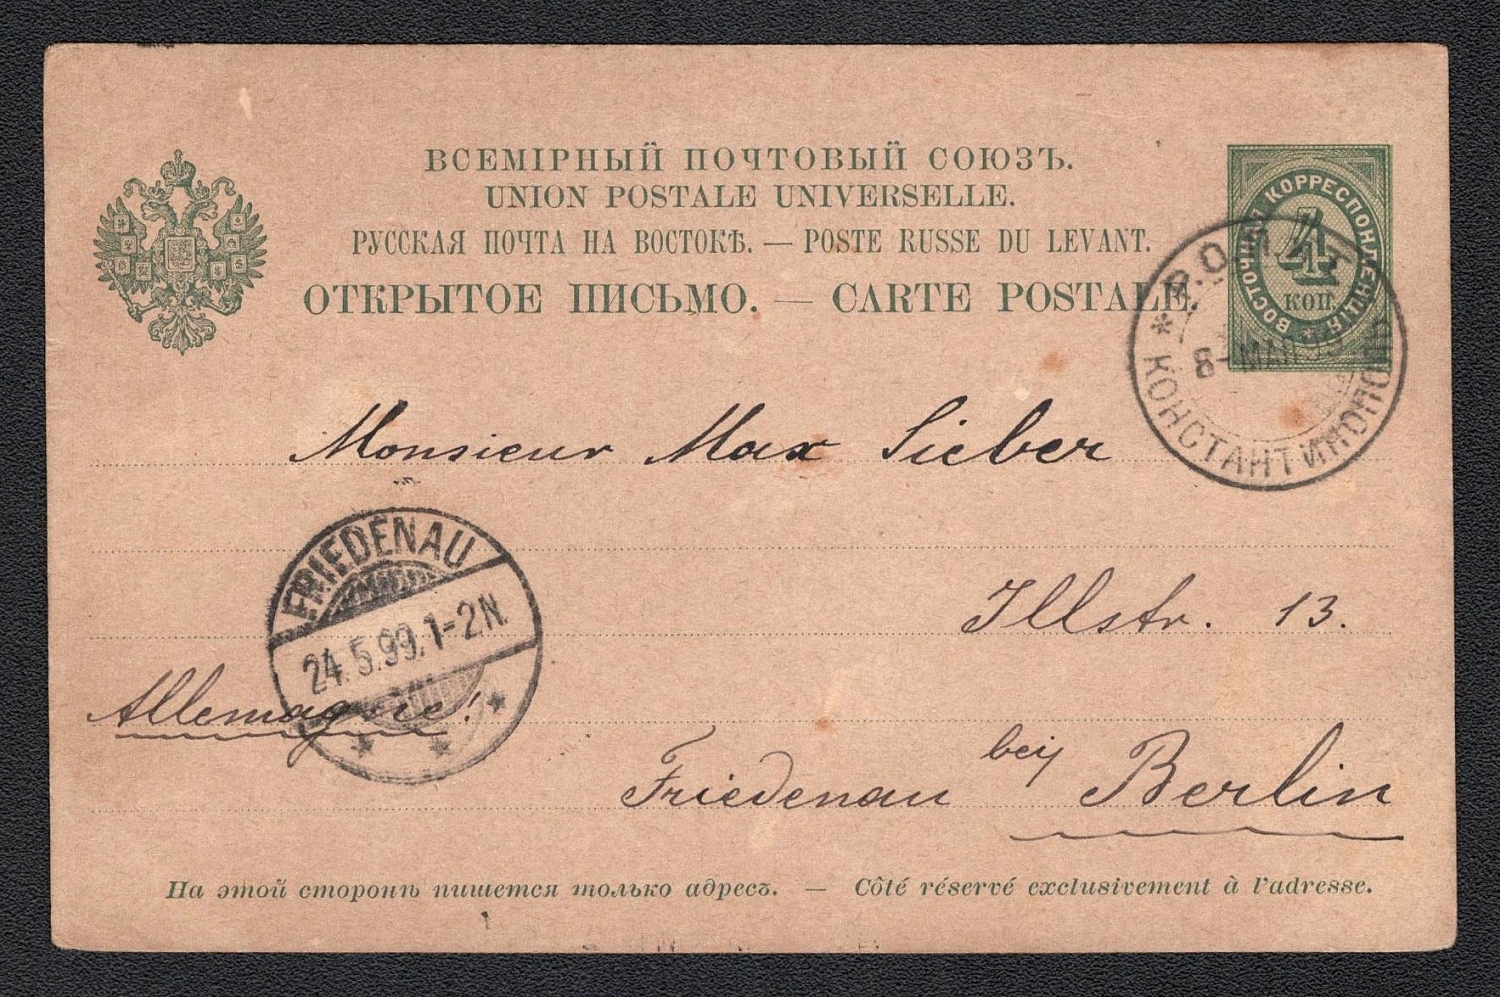 ВСЕМІРНЫЙ ПОЧТОВЫЙ СОЮЗЪ.
UNION POSTALE UNIVERSELLE.
РУССКАЯ ПОЧТА НА ВОСТОКѢ. — POSTE RUSSE DU LEVANT.
ОТКРЫТОЕ ПИСЬМО. — CARTE POSTALE.
ВОСТОЧНАЯ КОРРЕСПОНДЕНЦІЯ
4
КОП.
8-МАЯ
КОНСТАНТИНОПОЛЬ
Monsieur Max Sieber
FRIEDENAU
24.5.99.1-2N.
Illstr. 13.
Allemagne!
Friedenau bey Berlin
На этой сторонѣ пишется только адресъ. — Côté réservé exclusivement à l'adresse.